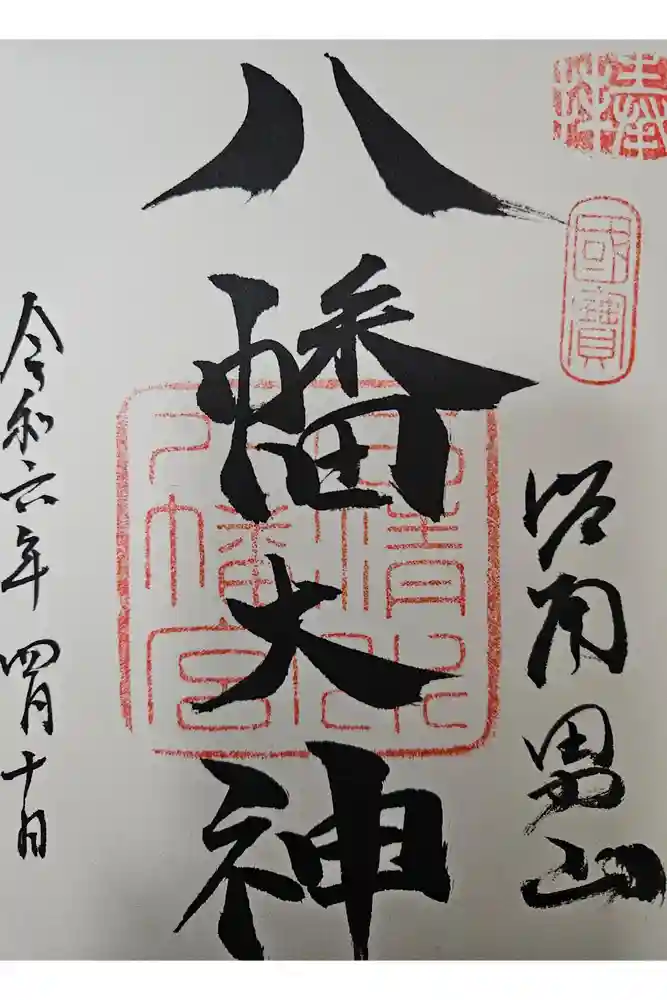 國寶
洛南男山
八幡大神
石清水
八幡宮
令和六年四月十日